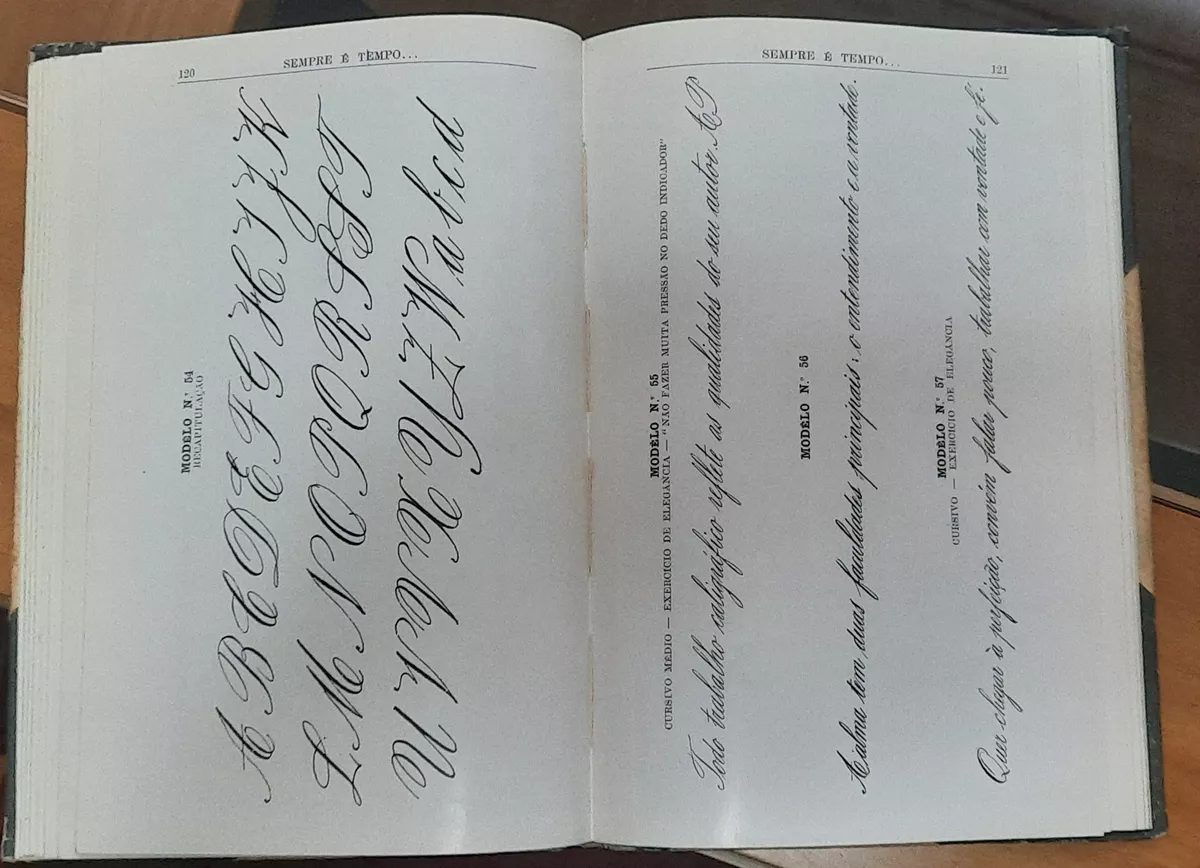 120
SEMPRE É TEMPO...
MODÊLO N.º 54
RECAPITULAÇÃO
A B C D E F G H I J K
L M N O P Q R S T
U V X Y Z W a b c d
SEMPRE É TEMPO...
121
MODÊLO N.º 55
CURSIVO MÉDIO — EXERCÍCIO DE ELEGÂNCIA — "NÃO FAZER MUITA PRESSÃO NO DEDO INDICADOR"
Todo trabalho caligráfico reflete as qualidades do seu autor. AP
MODÊLO N.º 56
A alma tem duas faculdades principais: o entendimento e a vontade.
MODÊLO N.º 57
CURSIVO — EXERCÍCIO DE ELEGÂNCIA
Quer chegar à perfeição, convém falar pouco, trabalhar com vontade e fé.